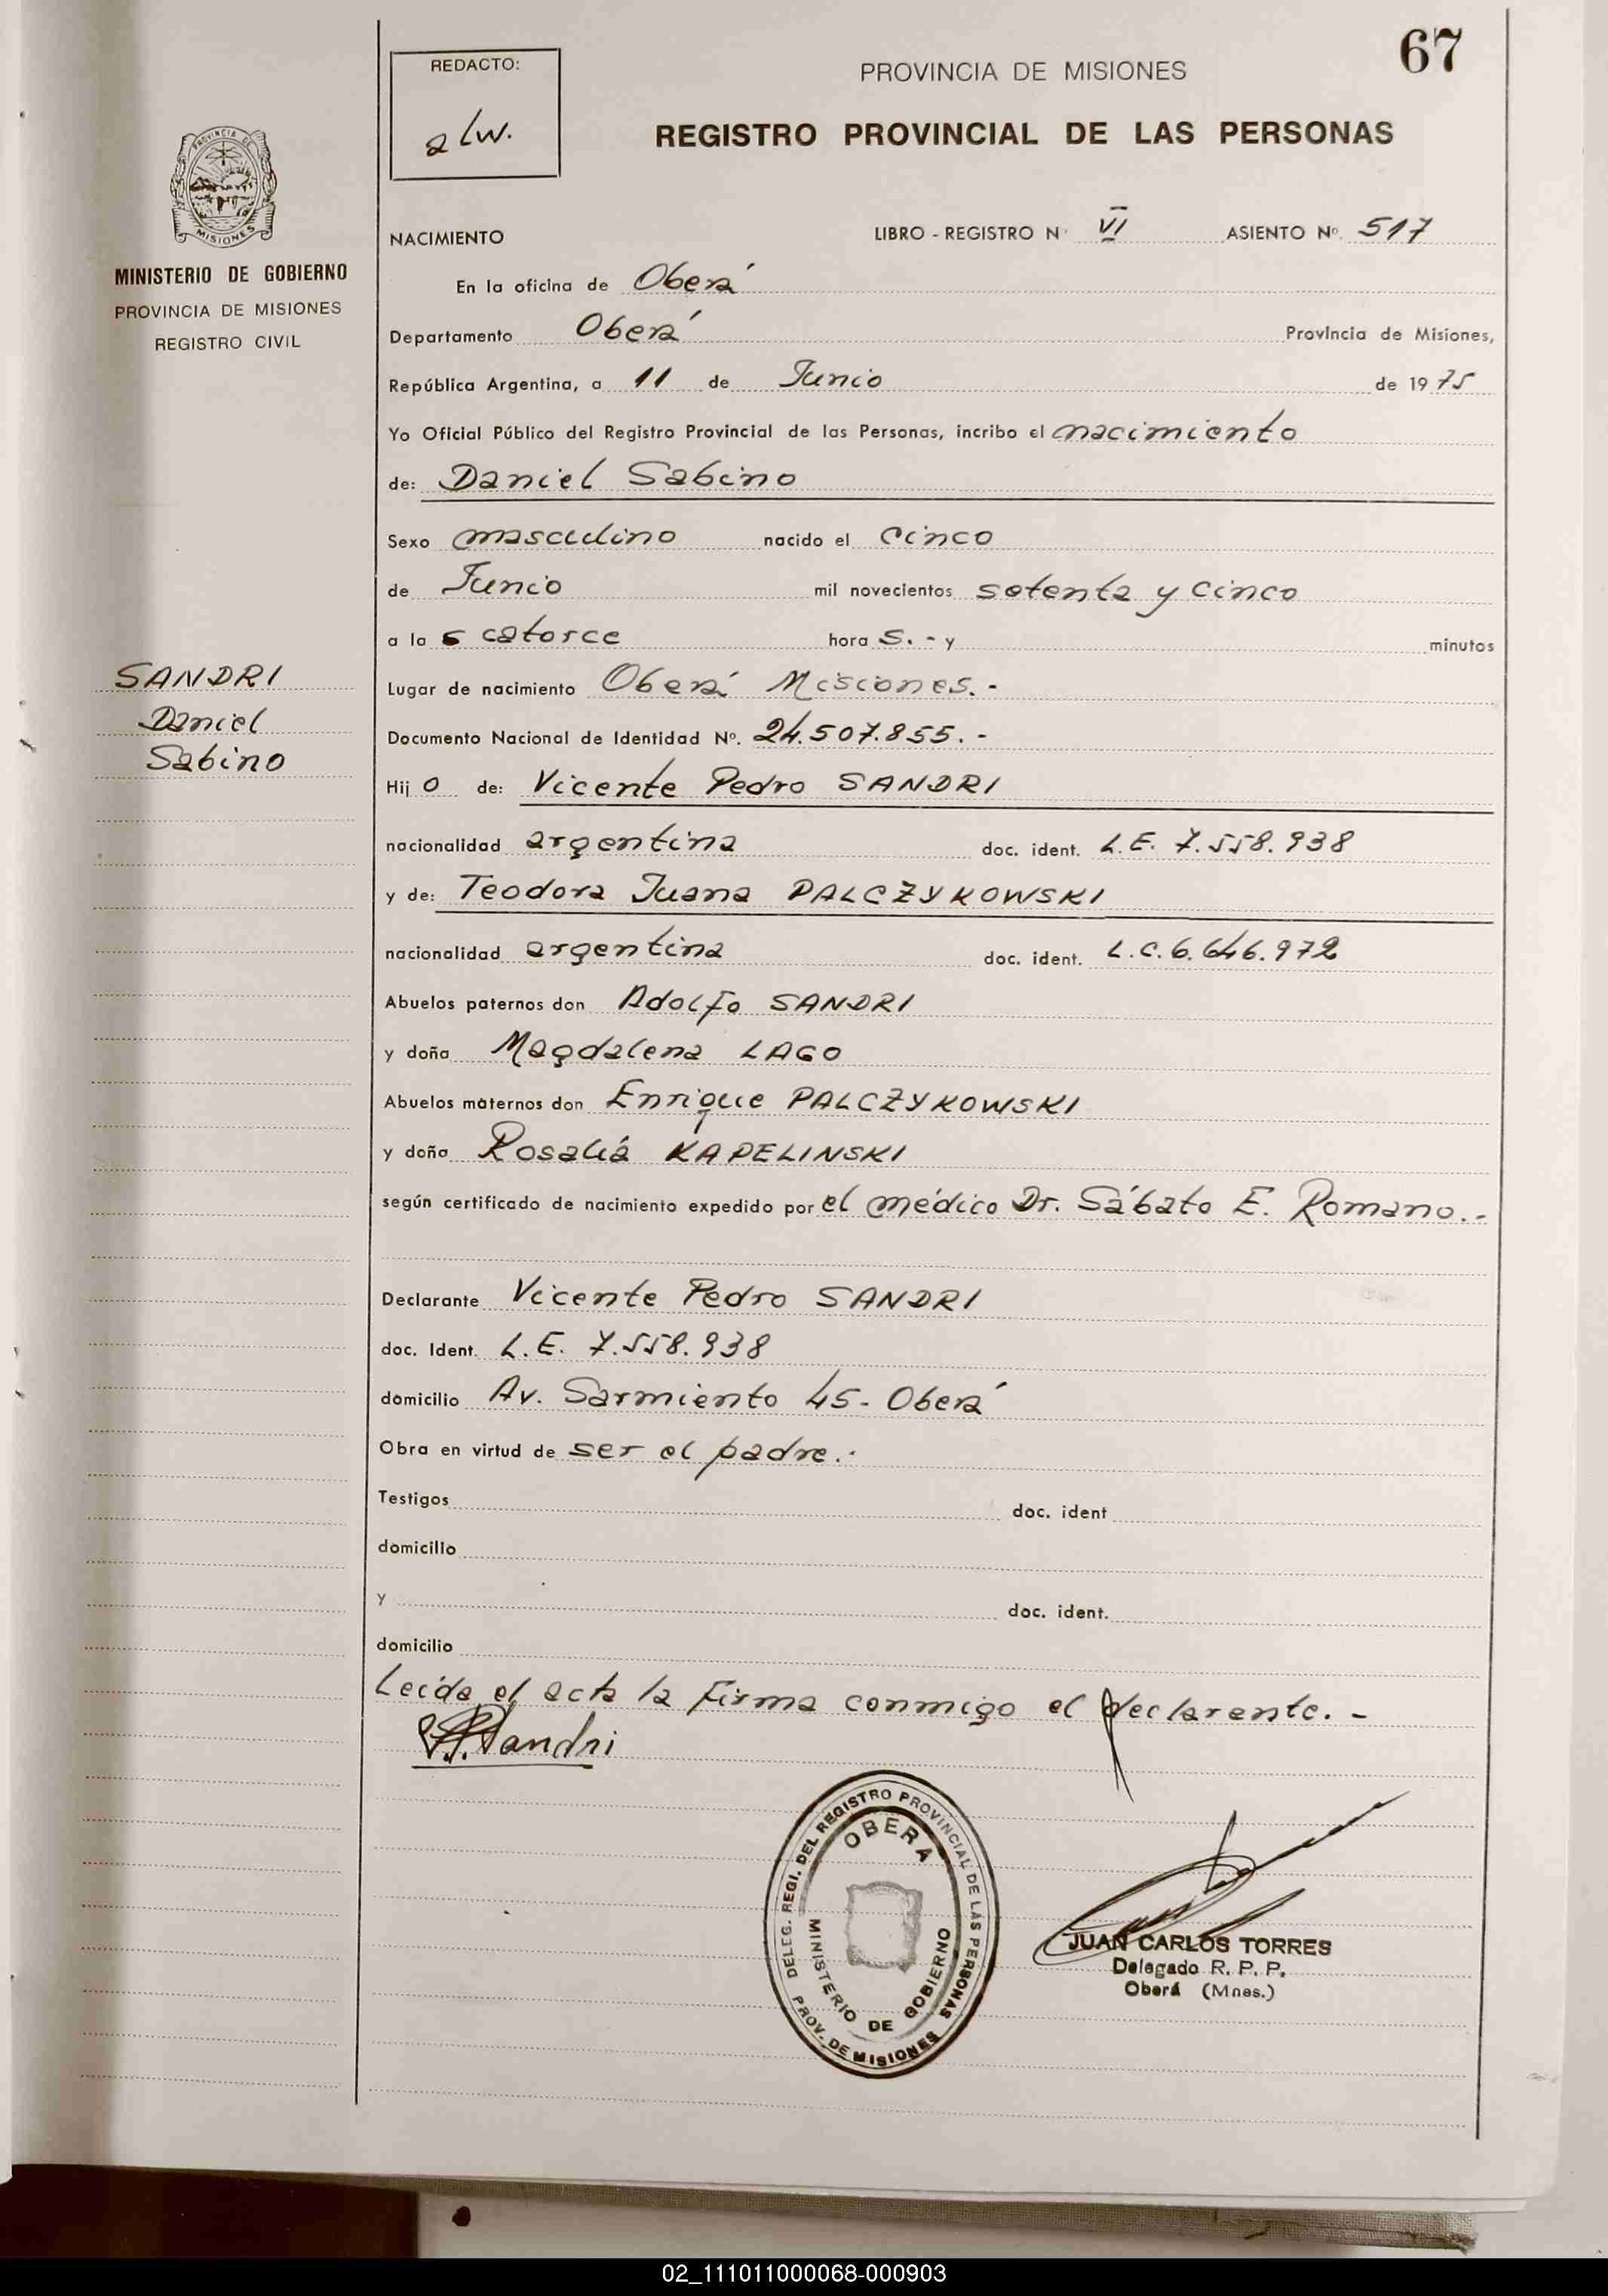 67
REDACTO:
alw.
PROVINCIA DE MISIONES
REGISTRO PROVINCIAL DE LAS PERSONAS
PROVINCIA DE MISIONES
MINISTERIO DE GOBIERNO
PROVINCIA DE MISIONES
REGISTRO CIVIL
SANDRI
Daniel
Sabino
NACIMIENTO LIBRO - REGISTRO Nº VI ASIENTO Nº. 517
En la oficina de Oberá
Departamento Oberá Provincia de Misiones,
República Argentina, a 11 de Junio de 1975
Yo Oficial Público del Registro Provincial de las Personas, incribo el nacimiento
de: Daniel Sabino
Sexo masculino nacido el cinco
de Junio mil novecientos setenta y cinco
a las catorce hora s. - y minutos
Lugar de nacimiento Oberá Misiones. -
Documento Nacional de Identidad Nº. 24.507.855. -
Hijo de: Vicente Pedro SANDRI
nacionalidad argentina doc. ident. L.E. 7.558.938
y de: Teodora Juana PALCZYKOWSKI
nacionalidad argentina doc. ident. L.C. 6.646.972
Abuelos paternos don Adolfo SANDRI
y doña Magdalena LAGO
Abuelos maternos don Enrique PALCZYKOWSKI
y doña Rosalía KAPELINSKI
según certificado de nacimiento expedido por el médico Dr. Sábato E. Romano. -
Declarante Vicente Pedro SANDRI
doc. Ident. L.E. 7.558.938
domicilio Av. Sarmiento 45- Oberá
Obra en virtud de ser el padre. -
Testigos doc. ident
domicilio
y doc. ident.
domicilio
Leída el acta la firma conmigo el declarante. -
Sandri
DELEG. REGI. DEL REGISTRO PROVINCIAL DE LAS PERSONAS
PROV. DE MISIONES
OBERA
MINISTERIO DE GOBIERNO
JUAN CARLOS TORRES
Delegado R. P. P.
Oberá (Mnes.)
02_111011000068-000903